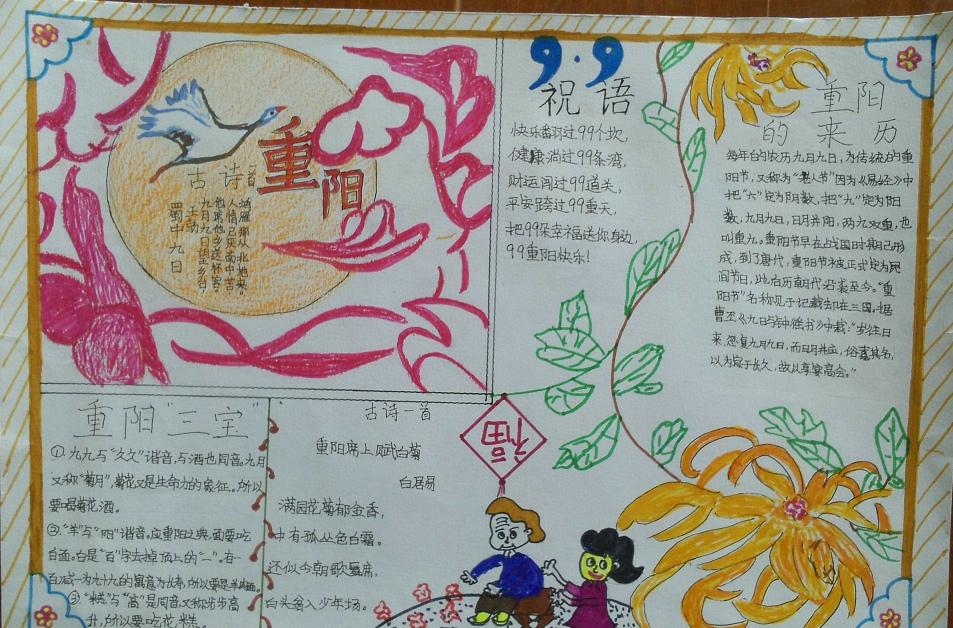 重阳
古诗一首
蜀中九日
九月九日望乡台，
他席他乡送杯客。
人情已厌南中苦，
鸿雁那从北地来。
9.9
祝语
快乐翻过99个坎，
健康淌过99条湾，
财运闯过99道关，
平安跨过99重天，
把99朵幸福送你身边，
99重阳快乐！
重阳
的来历
每年的农历九月九日，为传统的重
阳节，又称为“老人节”因为《易经》中
把“六”定为阴数，把“九”定为阳
数，九月九日，日月并阳，两九双重，也
叫重九。重阳节早在战国时期已形
成，到了唐代，重阳节被正式定为民
间节日，此后历朝代沿袭至今。“重
阳节”名称见于记载却在三国。据
曹丕《九日与钟繇书》中载：“岁往月
来，忽复九月九日，而日月并应，俗嘉其名，
以为宜于长久，故以享宴高会。”
重阳“三宝”
①九九与“久久”谐音，与酒也同音。九月
又称“菊月”，菊花又是生命力的象征。所以
要喝菊花酒。
②“羊”与“阳”谐音。应重阳之典，面要吃
白面。白是“百”字去掉顶上的“一”。有一
百减一为九十九的寓意为长寿，所以要是羊肉面。
③“糕”与“高”是同音，又称步步高
升，所以要吃花糕。
古诗一首
重阳席上赋白菊
白居易
满园花菊郁金香，
中有孤丛色白霜。
还似今朝歌舞席，
白头翁入少年场。
福